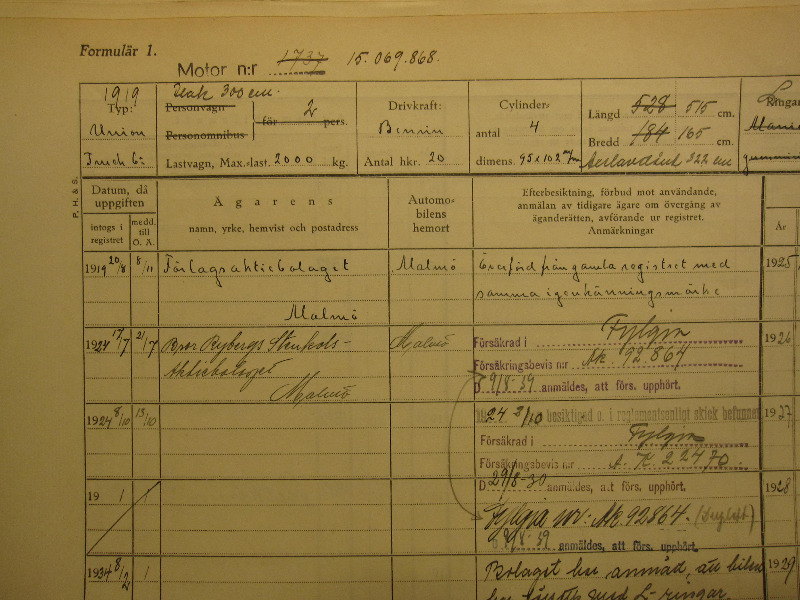 Formulär 1.
Motor n:r 1737 15.069.868.
1919
Typ:
Union
Truck 6:
flak 300 cm.
Personvagn
Personomnibus
för 2 pers.
Lastvagn, Max.-last. 2000 kg.
Drivkraft:
Bensin
Antal hkr. 20
Cylinder-
antal 4
dimens. 95x102 m/m
Längd 528 515 cm.
Bredd 184 165 cm.
Axelavstånd 322 cm
Ringar
gummi
P. H. & S.
Datum, då
uppgiften
intogs i
registret
medd.
till
O. A.
Ägarens
namn, yrke, hemvist och postadress
Automo-
bilens
hemort
Efterbesiktning, förbud mot användande,
anmälan av tidigare ägare om övergång av
äganderätten, avförande ur registret.
Anmärkningar
År
1919 20/8 8/11 Förlagsaktiebolaget Malmö Överförd från gamla registret med 1925
Malmö samma igenkänningsmärke
1924 17/7 21/7 Bror Rybergs Stenkols- Malmö Försäkrad i Fylgia 1926
Aktiebolaget Försäkringsbevis nr Ak 92864
Malmö D 9/8-39 anmäldes, att förs. upphört.
1924 8/10 13/10 1924 2/10 besiktigad o. i reglementsenligt skick befunnen 1927
Försäkrad i Fylgia
Försäkringsbevis nr A.K. 22470.
D 29/8-30 anmäldes, att förs. upphört.
19 / / 1928
Fylgia nr: Ak. 92864.
D 9/8-39 anmäldes, att förs. upphört.
1934 8/2 / Bolaget har anmäld, att bilen 1929
har med L-ringar.